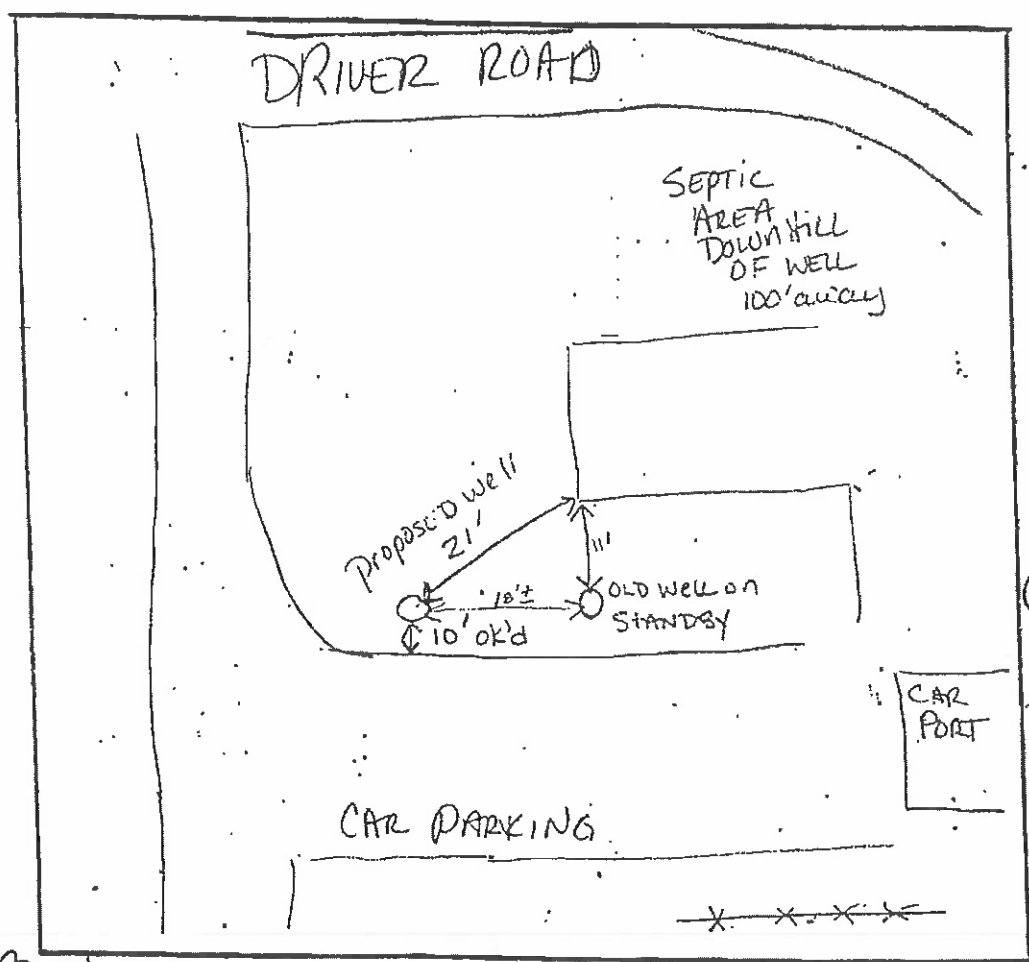 DRIVER ROAD
SEPTIC
AREA
DOWNHILL
OF WELL
100' away
Proposed well
21'
11'
18'±
OLD WELL ON
STANDBY
10' ok'd
CAR
PORT
CAR PARKING